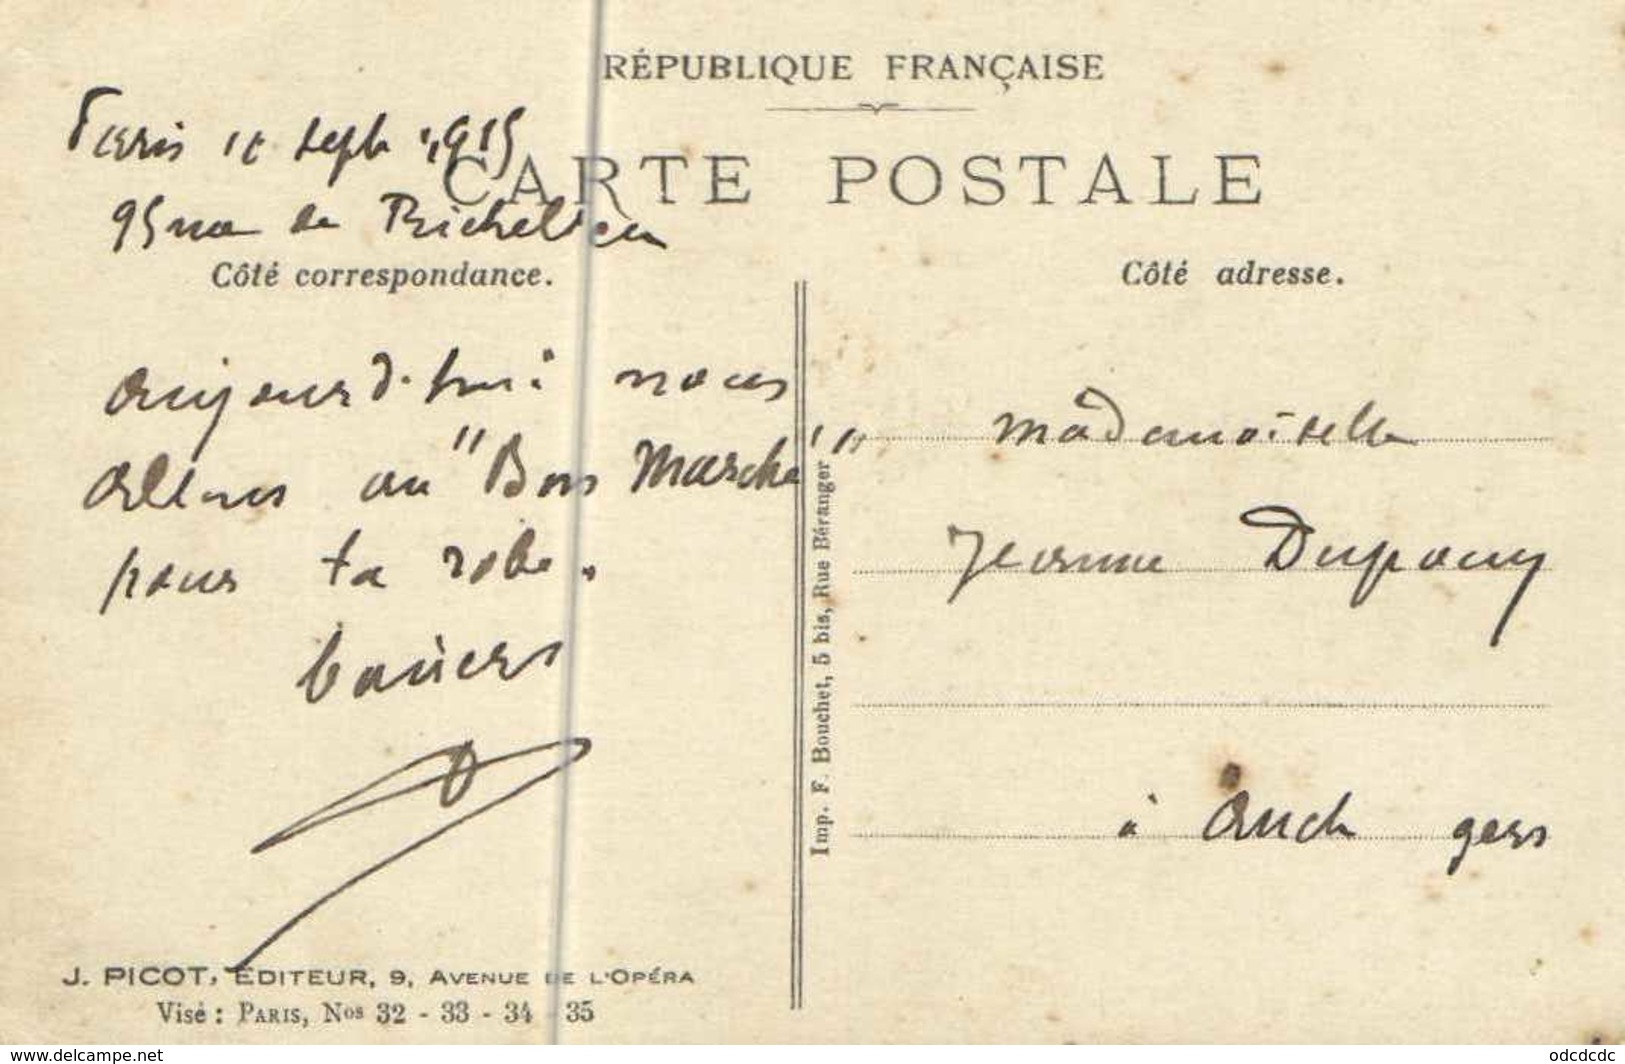 RÉPUBLIQUE FRANÇAISE
CARTE POSTALE
Paris sept 1915
95 rue de Richelieu
Côté correspondance.
Côté adresse.
aujourd'hui nous
allons au "Bon Marché"
pour ta robe.
baisers
Mademoiselle
Jeanne Dupouy
à Auch gers
Imp. F. Bouchet, 5 bis, Rue Béranger
J. PICOT, ÉDITEUR, 9, AVENUE DE L'OPÉRA
Visé : PARIS, Nos 32 - 33 - 34 - 35
https://www.delcampe.net
odcdcdc